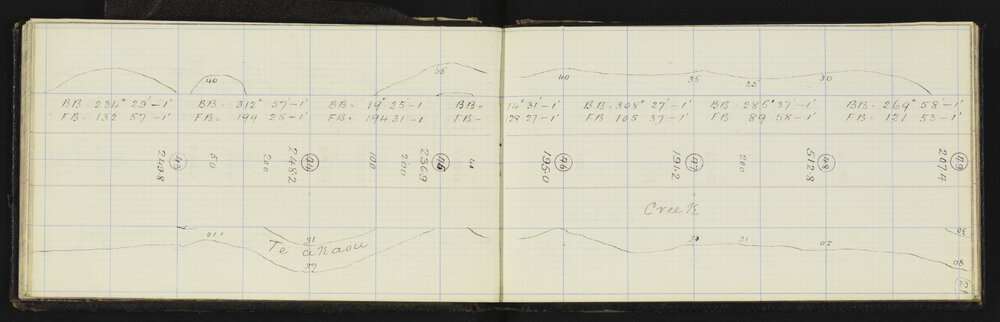 40 55 40 35 25 30
BB- 234° 29'-1' BB- 312° 57'-1' BB- 19° 25'-1 BB- 14° 31'-1' BB- 308° 27'-1' BB- 285° 37'-1' BB- 269° 58'-1'
FB- 132 57-1' FB- 199 25-1' FB- 194 31-1 FB- 128 27-1' FB 105 37-1' FB 89 58-1' FB- 121 53-1'
43 50 44 100 45 40 46 47 200 48 49
2498 20 2482 200 2369 1950 1912 5128 2074
Creek
Te akaou
15
15
20
30
80
21